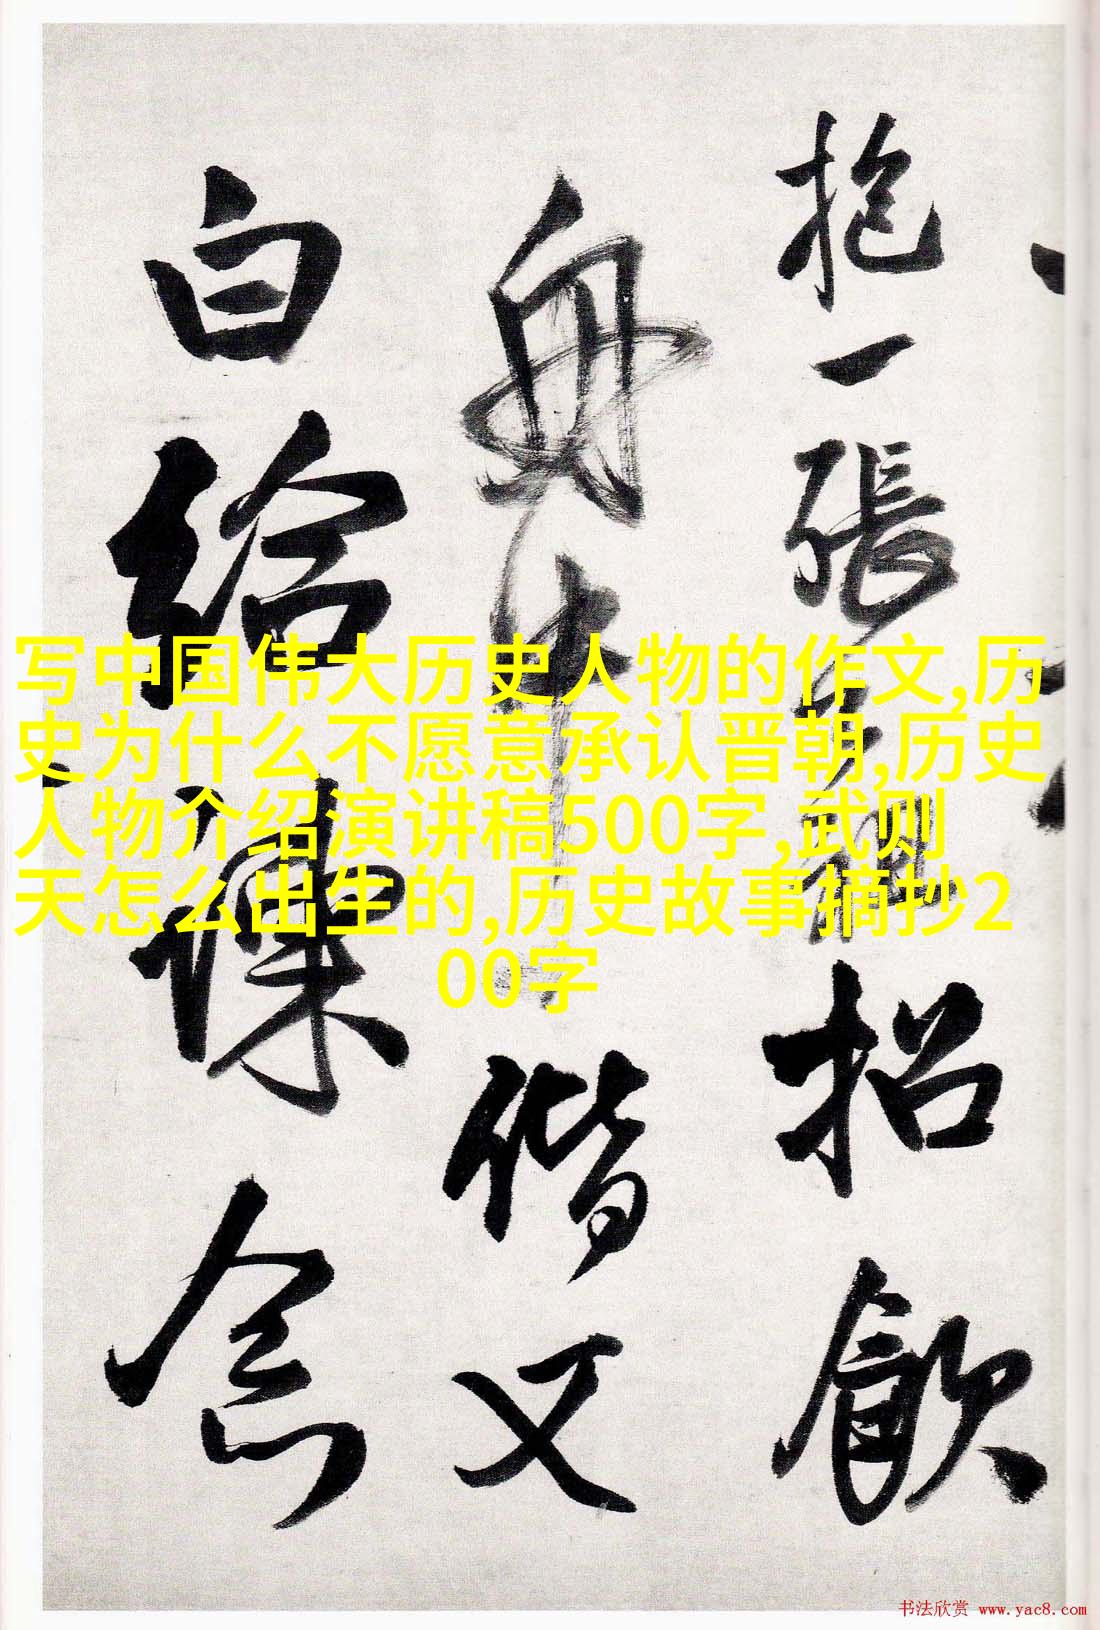 抱一張琴
招飲
舟中
偕又
白給諫
念
写中国伟大历史人物的作文,历
史为什么不愿意承认晋朝,历史
人物介绍演讲稿500字,武则
天怎么出生的,历史故事摘抄2
00字
书法欣赏 www.yac8.com